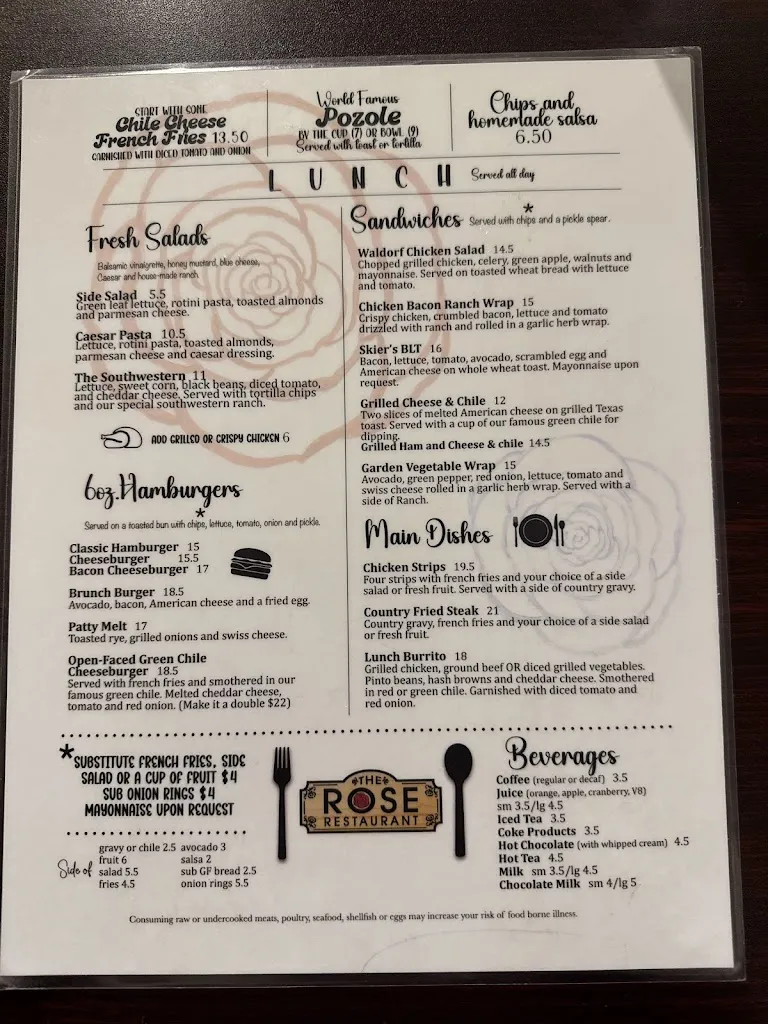 START WITH SOME
Chile Cheese
French Fries 13.50
GARNISHED WITH DICED TOMATO AND ONION
World Famous
Pozole
BY THE CUP (7) OR BOWL (9)
Served with toast or tortilla
Chips and
homemade salsa
6.50
LUNCH Served all day
Fresh Salads
Balsamic vinaigrette, honey mustard, blue cheese,
Caesar and house-made ranch.
Side Salad 5.5
Green leaf lettuce, rotini pasta, toasted almonds
and parmesan cheese.
Caesar Pasta 10.5
Lettuce, rotini pasta, toasted almonds,
parmesan cheese and caesar dressing.
The Southwestern 11
Lettuce, sweet corn, black beans, diced tomato,
and cheddar cheese. Served with tortilla chips
and our special southwestern ranch.
ADD GRILLED OR CRISPY CHICKEN 6
6oz. Hamburgers
*
Served on a toasted bun with chips, lettuce, tomato, onion and pickle.
Classic Hamburger 15
Cheeseburger 15.5
Bacon Cheeseburger 17
Brunch Burger 18.5
Avocado, bacon, American cheese and a fried egg.
Patty Melt 17
Toasted rye, grilled onions and swiss cheese.
Open-Faced Green Chile
Cheeseburger 18.5
Served with french fries and smothered in our
famous green chile. Melted cheddar cheese,
tomato and red onion. (Make it a double $22)
Sandwiches Served with chips and a pickle spear.
*
Waldorf Chicken Salad 14.5
Chopped grilled chicken, celery, green apple, walnuts and
mayonnaise. Served on toasted wheat bread with lettuce
and tomato.
Chicken Bacon Ranch Wrap 15
Crispy chicken, crumbled bacon, lettuce and tomato
drizzled with ranch and rolled in a garlic herb wrap.
Skier's BLT 16
Bacon, lettuce, tomato, avocado, scrambled egg and
American cheese on whole wheat toast. Mayonnaise upon
request.
Grilled Cheese & Chile 12
Two slices of melted American cheese on grilled Texas
toast. Served with a cup of our famous green chile for
dipping.
Grilled Ham and Cheese & chile 14.5
Garden Vegetable Wrap 15
Avocado, green pepper, red onion, lettuce, tomato and
swiss cheese rolled in a garlic herb wrap. Served with a
side of Ranch.
Main Dishes
Chicken Strips 19.5
Four strips with french fries and your choice of a side
salad or fresh fruit. Served with a side of country gravy.
Country Fried Steak 21
Country gravy, french fries and your choice of a side salad
or fresh fruit.
Lunch Burrito 18
Grilled chicken, ground beef OR diced grilled vegetables.
Pinto beans, hash browns and cheddar cheese. Smothered
in red or green chile. Garnished with diced tomato and
red onion.
*SUBSTITUTE FRENCH FRIES, SIDE
SALAD OR A CUP OF FRUIT $4
SUB ONION RINGS $4
MAYONNAISE UPON REQUEST
Side of
gravy or chile 2.5 avocado 3
fruit 6 salsa 2
salad 5.5 sub GF bread 2.5
fries 4.5 onion rings 5.5
THE
ROSE
RESTAURANT
Beverages
Coffee (regular or decaf) 3.5
Juice (orange, apple, cranberry, V8)
sm 3.5/lg 4.5
Iced Tea 3.5
Coke Products 3.5
Hot Chocolate (with whipped cream) 4.5
Hot Tea 4.5
Milk sm 3.5/lg 4.5
Chocolate Milk sm 4/lg 5
Consuming raw or undercooked meats, poultry, seafood, shellfish or eggs may increase your risk of food borne illness.